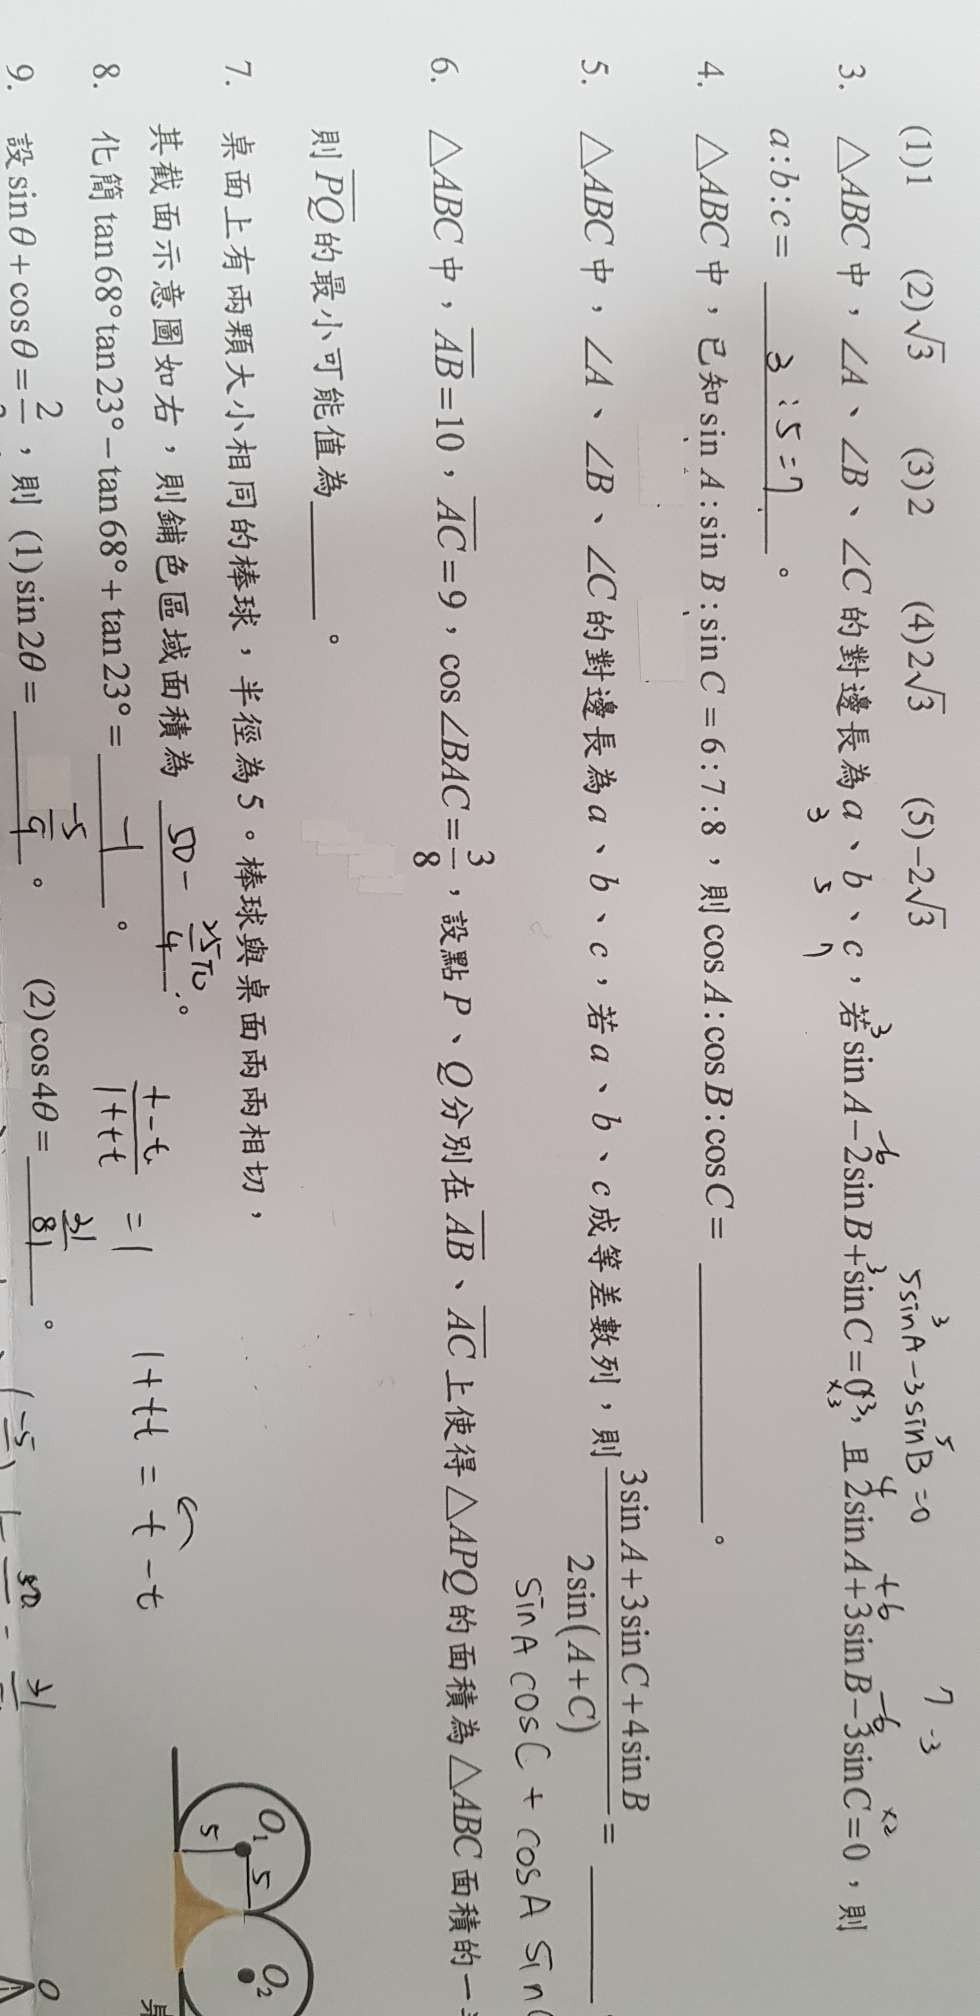 (1)1 (2)√3 (3)2 (4)2√3 (5)−2√3
5sinA−3sinB=0
3 5
7 -3
3. △ABC中，∠A、∠B、∠C的對邊長為a、b、c，若sinA−2sinB+sinC=0，且2sinA+3sinB−3sinC=0，則
3 5 7
3 -6 3 ×3 4 +6 -6 ×2
a:b:c= 3:5=7 。
4. △ABC中，已知sinA:sinB:sinC=6:7:8，則cosA:cosB:cosC= 。
5. △ABC中，∠A、∠B、∠C的對邊長為a、b、c，若a、b、c成等差數列，則 (3sinA+3sinC+4sinB)/(2sin(A+C)) =
sinA cosC + cosA sin
6. △ABC中，AB=10，AC=9，cos∠BAC=3/8，設點P、Q分別在AB、AC上使得△APQ的面積為△ABC面積的一
則PQ的最小可能值為 。
7. 桌面上有兩顆大小相同的棒球，半徑為5。棒球與桌面兩兩相切，
其截面示意圖如右，則鋪色區域面積為 50−25π/4 。
O₁ O₂
5 5
8. 化簡tan68°tan23°−tan68°+tan23°= −1 。
t−t/1+tt =1 1+tt = t−t
9. 設sinθ+cosθ=2/ ，則 (1)sin2θ= −5/9 。 (2)cos4θ= 31/81 。